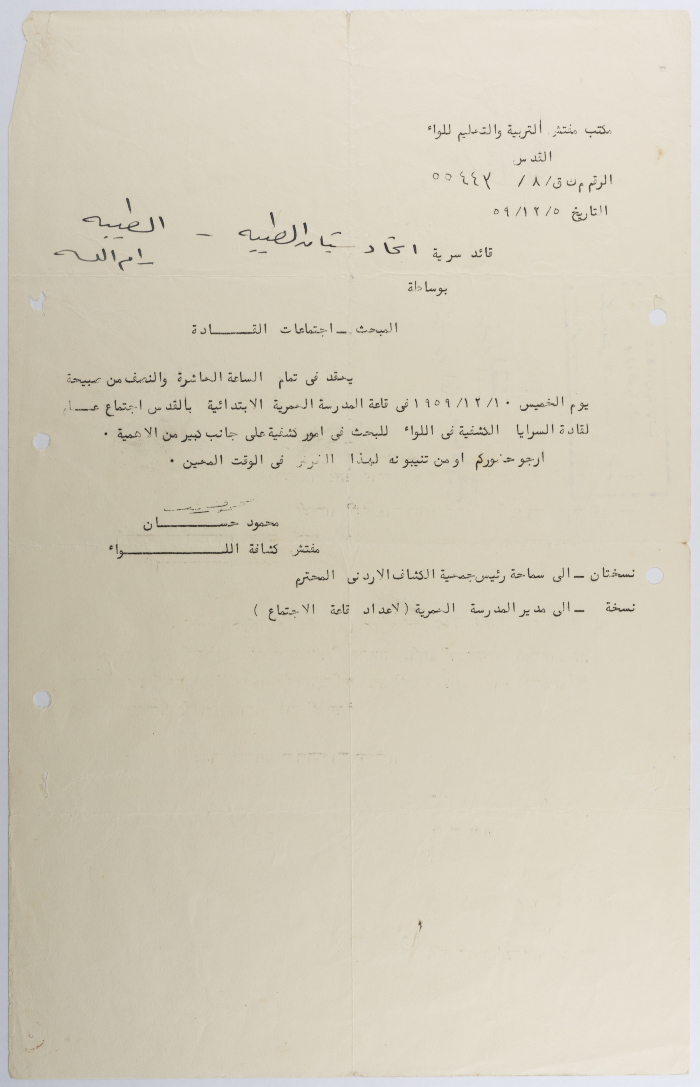 مكتب مفتش التربية والتعليم للواء
القدس
الرقم م ت ق/ ٨ / ٥٥٤٤٣
التاريخ ٥٩/١٢/٥
قائد سرية اتحاد شبان الطيبه – الطيبه
رام الله
بوساطة
المبحث – اجتماعات القـــــادة
يعقد فى تمام الساعة العاشرة والنصف من صبيحة
يوم الخميس ١٩٥٩/١٢/١٠ فى قاعة المدرسة العمرية الابتدائية بالقدس اجتماع عـــام
لقادة السرايا الكشفية فى اللواء للبحث فى امور كشفية على جانب كبير من الاهمية ٠
ارجو حضوركم او من تنيبونه لهذا الغرض فى الوقت المعين ٠
محمود حســـــــان
مفتش كشافة اللـــــــــواء
نسختان – الى سماحة رئيس جمعية الكشاف الاردنى المحترم
نسخة – الى مدير المدرسة العمرية (لاعداد قاعة الاجتماع )